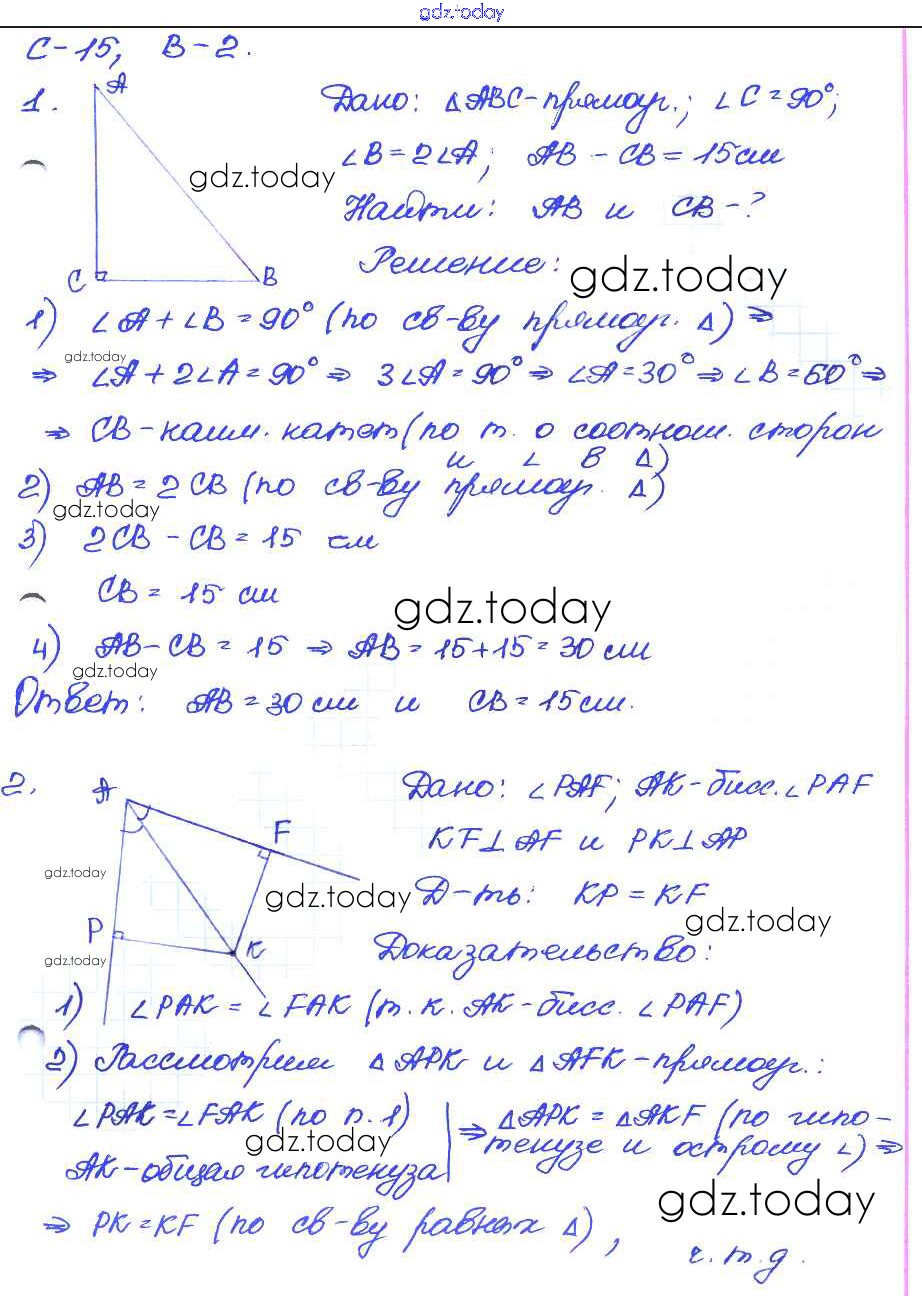 gdz.today
С-15, В-2.
1.
A
C
B
gdz.today
Дано: △ABC-прямоуг.; ∠C=90°;
∠B=2∠A; AB-CB=15см
Найти: AB и CB-?
Решение:
gdz.today
1) ∠A+∠B=90° (по св-ву прямоуг. △) ⇒
gdz.today
⇒ ∠A+2∠A=90° ⇒ 3∠A=90° ⇒ ∠A=30° ⇒ ∠B=60° ⇒
⇒ CB-наим. катет (по т. о соотнош. сторон
и ∠ в △)
2) AB=2CB (по св-ву прямоуг. △)
gdz.today
3) 2CB-CB=15 см
CB=15 см
gdz.today
4) AB-CB=15 ⇒ AB=15+15=30 см
gdz.today
Ответ: AB=30 см и CB=15см.
2.
A
F
P
K
gdz.today
gdz.today
Дано: ∠PAF; AK-бисс. ∠PAF
KF⊥AF и PK⊥AP
gdz.today
Д-ть: KP=KF
gdz.today
Доказательство:
1) ∠PAK=∠FAK (т.к. AK-бисс. ∠PAF)
2) Рассмотрим △APK и △AFK-прямоуг.:
∠PAK=∠FAK (по п.1)
gdz.today
AK-общая гипотенуза
⇒ △APK=△AKF (по гипо-
тенузе и острому ∠) ⇒
gdz.today
⇒ PK=KF (по св-ву равных △),
ч.т.д.